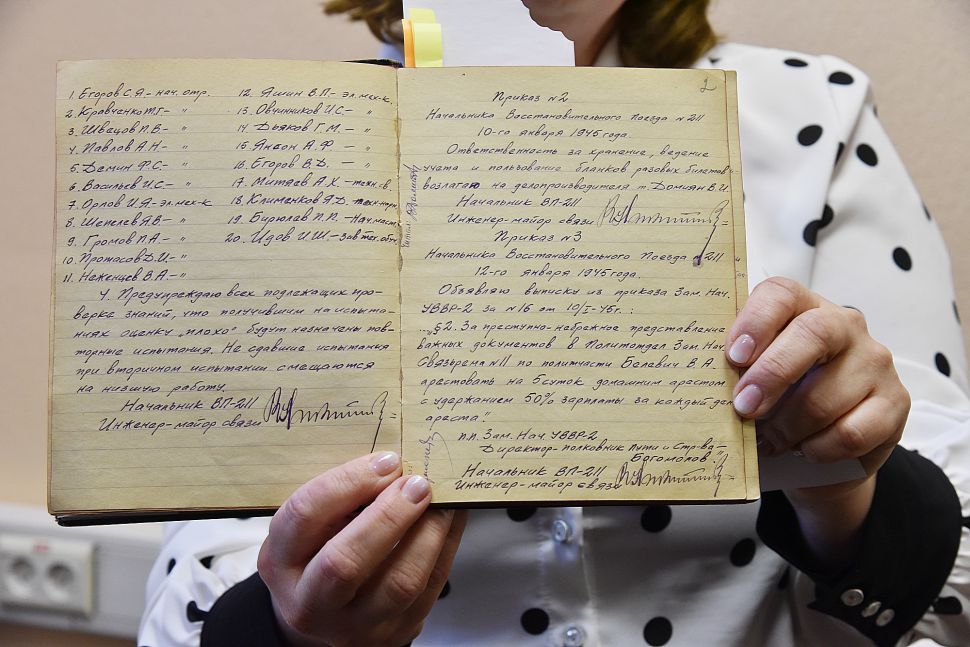 1. Егоров С.Я. – нач. отр.
2. Кравченко Т.Г. – "
3. Швецов П.В. – "
4. Павлов А.Н – "
5. Демин Ф.С. – "
6. Васильев И.С – "
7. Орлов И.Я – эл. мех-к
8. Шепелев Я.В – "
9. Громов П.А – "
10. Протасов Д.И. – "
11. Неженцев В.А. – "
12. Яшин В.П. – эл. мех-к.
13. Овчинников И.С. – "
14. Дьяков Г.М. – "
15. Янсон А.Ф – "
16. Егоров В.Д. – "
17. Митяев А.Х. – техн. св.
18. Клименков Я.Д.
19. Бирюлев П.П. – Нач. маст.
20. Идов И.Ш. –
4. Предупреждаю всех подлежащих про-
верке знаний, что получившим на испыта-
ниях оценку „плохо" будут назначены пов-
торные испытания. Не сдавшие испытания
при вторичном испытании смещаются
на низшую работу.
Начальник ВП-211
Инженер-майор связи
2
Приказ №2
Начальника Восстановительного Поезда №211
10-го января 1945 года.
Ответственность за хранение, ведение
учета и пользование бланков разовых билетов
возлагаю на делопроизводителя т. Домиян В.И
Начальник ВП-211
Инженер-майор связи
Приказ №3
Начальника Восстановительного Поезда №211
12-го января 1945 года.
Объявляю выписку из приказа Зам. Нач.
УВВР-2 за №16 от 10/I-45г.:
„§2. За преступно-небрежное представление
важных документов в Политотдел Зам. Нач.
Связьрема №11 по политчасти Белевич В.А.
арестовать на 5 суток домашним арестом
с удержанием 50% зарплаты за каждый день
ареста."
п.п. Зам. Нач. УВВР-2
Директор-полковник Пути и Стр-ва –
Богомолов
Начальник ВП-211
Инженер-майор связи